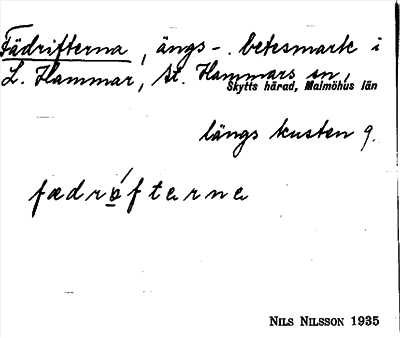 Fädrifterna, ängs-. betesmark i
L. Hammar, St. Hammars sn,
Skytts härad, Malmöhus län
längs kusten 9.
fædrǿfterne
NILS NILSSON 1935